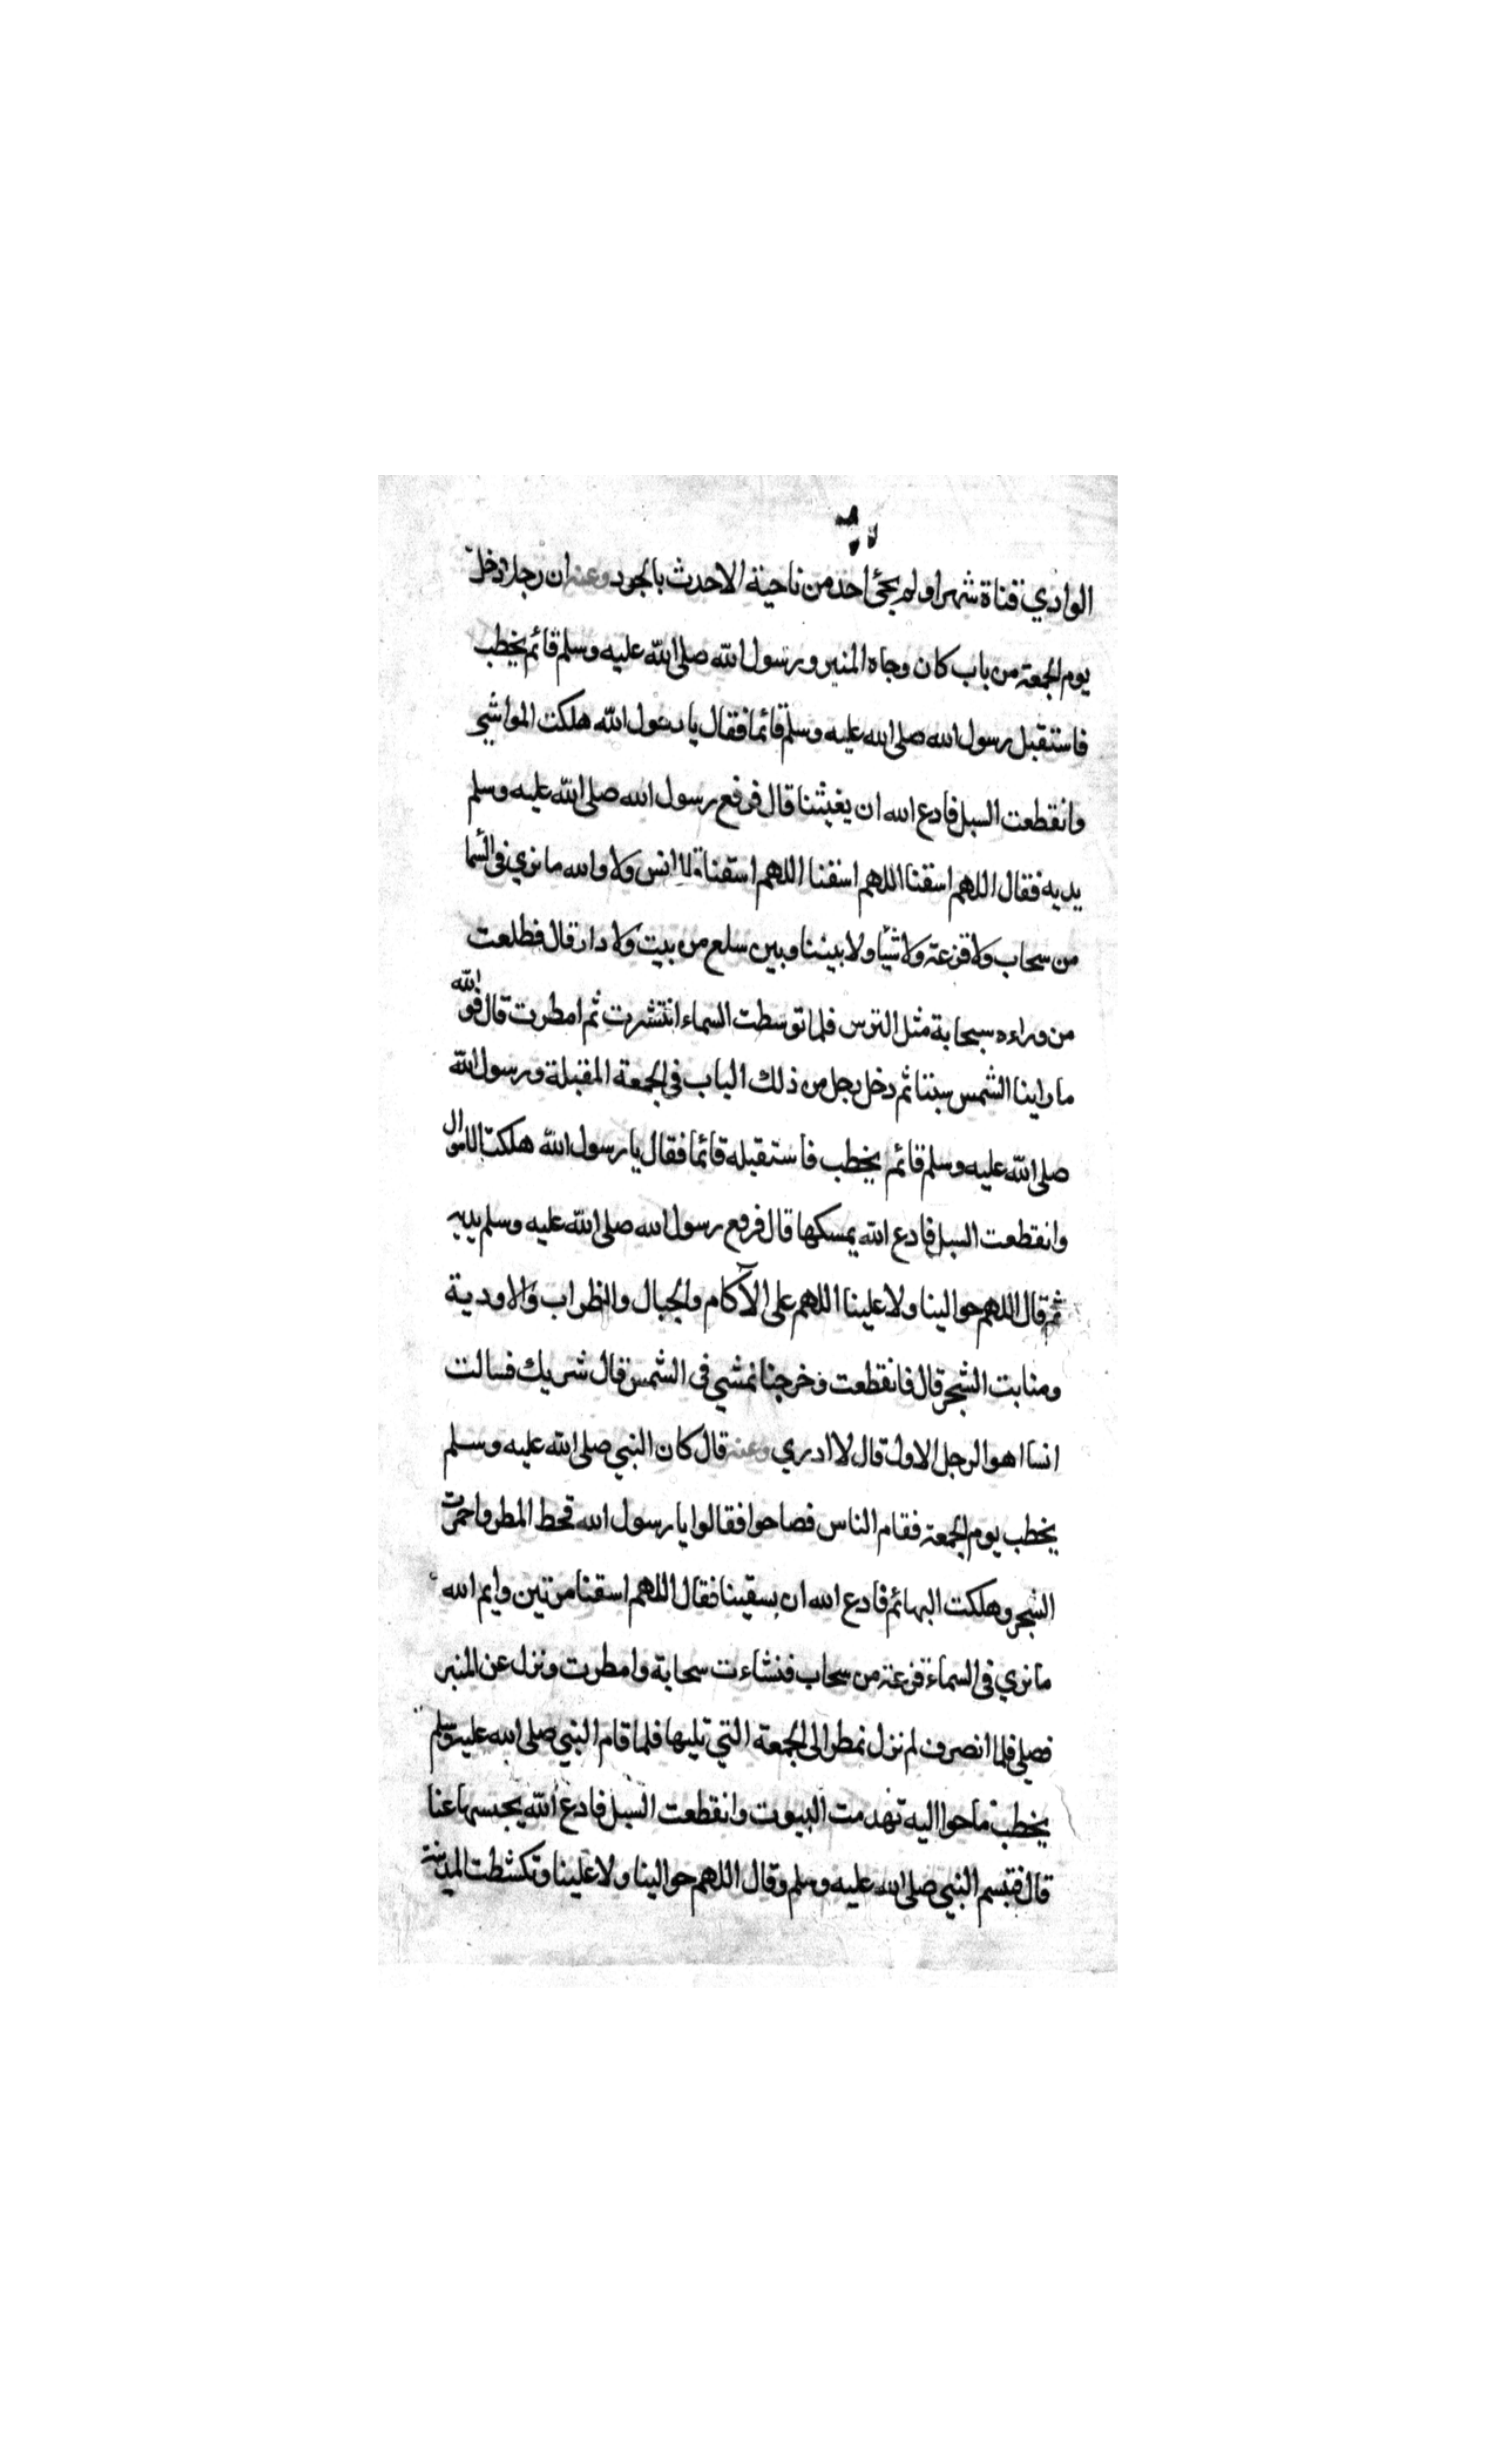 الوادي قناة شهرا ولم يجئ احد من ناحية الاحدث بالجود وعنه ان رجلا دخل
يوم الجمعة من باب كان وجاه المنبر ورسول الله صلى الله عليه وسلم قائم يخطب
فاستقبل رسول الله صلى الله عليه وسلم قائما فقال يا رسول الله هلكت المواشي
وانقطعت السبل فادع الله ان يغيثنا قال فرفع رسول الله صلى الله عليه وسلم
يديه فقال اللهم اسقنا اللهم اسقنا اللهم اسقنا قال انس ولا والله ما نري في السما
من سحاب ولا قزعة ولا شيأ ولا بيننا وبين سلع من بيت ولا دار قال فطلعت
من وراءه سبحابة مثل الترس فلما توسطت السماء انتشرت ثم امطرت قال فوالله
ما راينا الشمس سبتا ثم دخل رجل من ذلك الباب في الجمعة المقبلة ورسول الله
صلى الله عليه وسلم قائم يخطب فاستقبله قائما فقال يا رسول الله هلكت الاموال
وانقطعت السبل فادع الله يمسكها قال فرفع رسول الله صلى الله عليه وسلم يديه
ثم قال اللهم حوالينا ولا علينا اللهم على الآكام والجبال والظراب والاودية
ومنابت الشجر قال فانقطعت وخرجنا نمشي في الشمس قال شريك فسالت
انسا اهو الرجل الاول قال لا ادري وعنه قال كان النبي صلى الله عليه وسلم
يخطب يوم الجمعة فقام الناس فصاحوا فقالوا يا رسول الله قحط المطر واحمرت
الشجر وهلكت البهائم فادع الله ان يسقينا فقال اللهم اسقنا مرتين وايم الله
ما نري في السماء قزعة من سحاب فنشاءت سحابة وامطرت ونزل عن المنبر
فصلى فلما انصرف لم نزل نمطر الى الجمعة التي تليها فلما قام النبي صلى الله عليه وسلم
يخطب صاحوا اليه تهدمت البيوت وانقطعت السبل فادع الله يحبسها عنا
قال فتبسم النبي صلى الله عليه وسلم وقال اللهم حوالينا ولا علينا وتكشطت المدينة